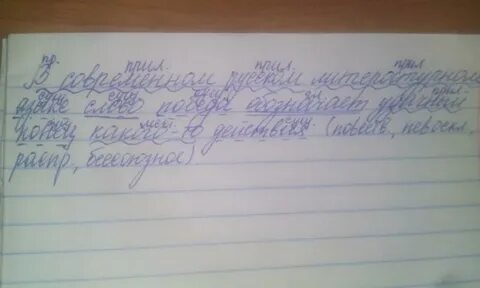 пр. прил. прил. прил
В современном русском литературном
сущ. сущ. сущ. прил.
языке слово победа обозначает успешный
сущ. мест. сущ.
конец какого-то действия. (повеств, невоскл,
распр, бессоюзное)